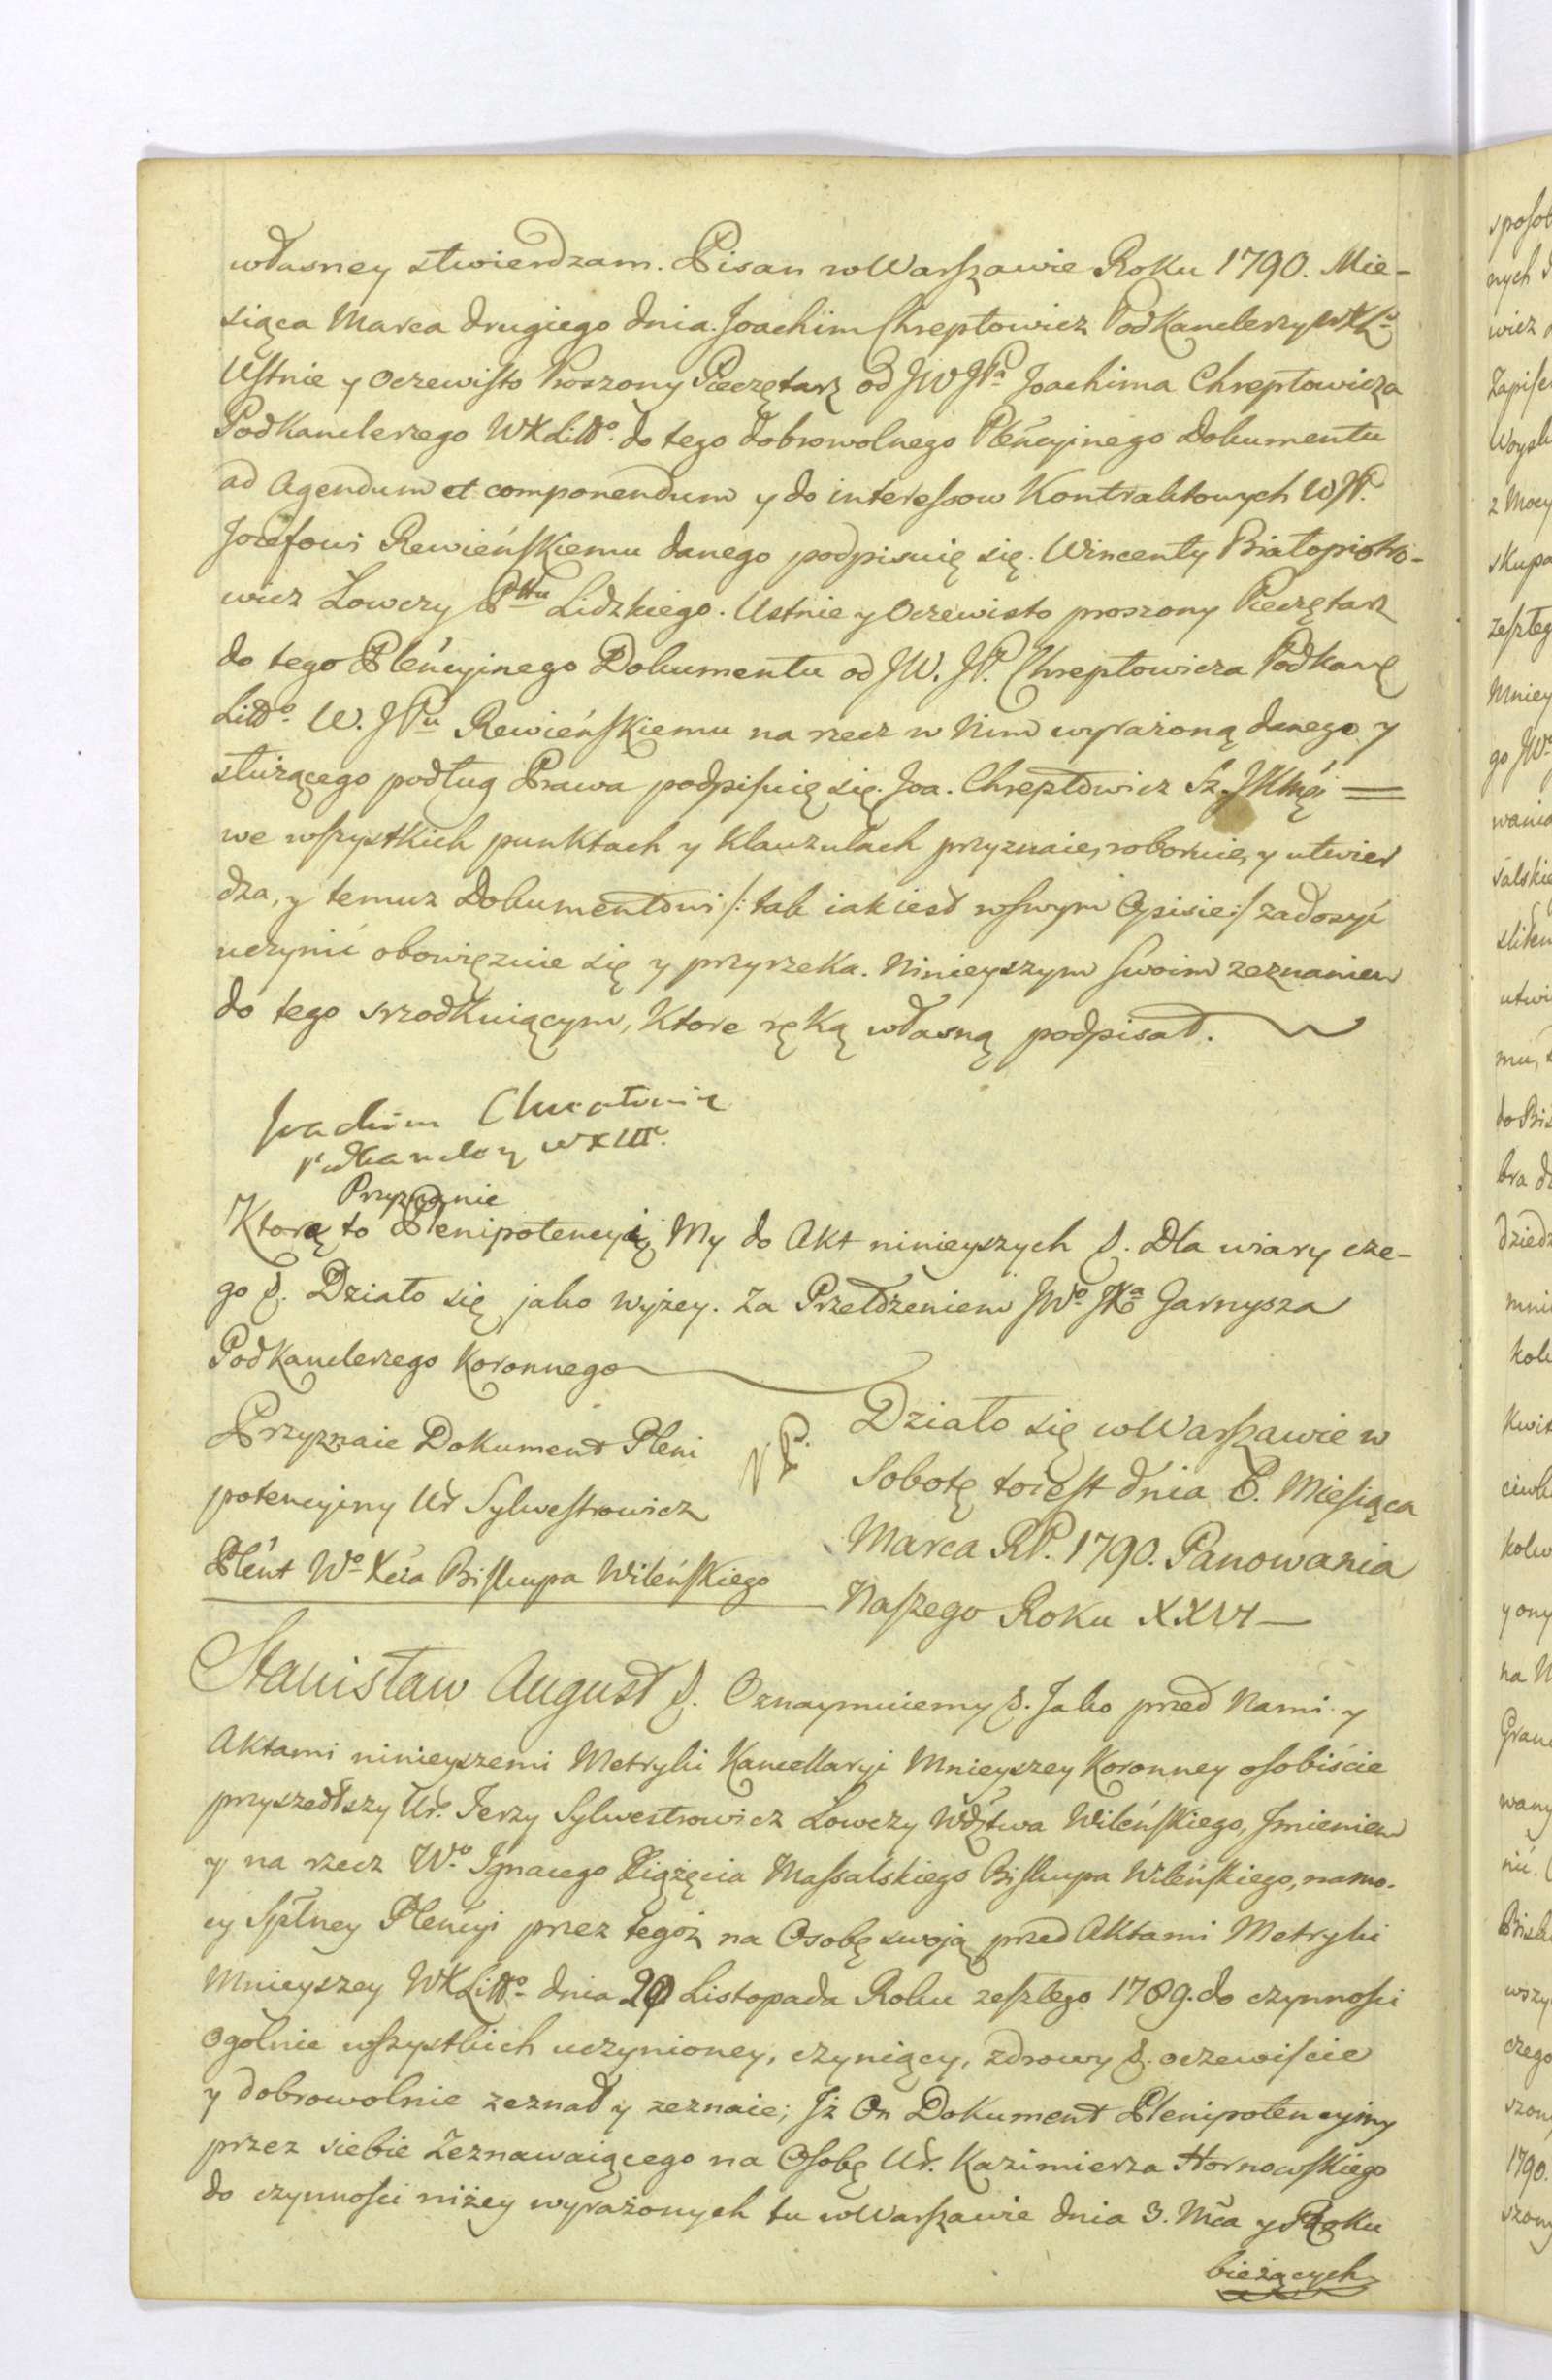 własney stwierdzam. Pisan w Warszawie Roku 1790. Mie-
siąca Marca drugiego dnia. Joachim Chreptowicz Podkanclerzy WXL.
Ustnie y oczewisto Proszony Pieczętarz od JWJPa Joachima Chreptowicza
Podkanclerzego WXLitto. do tego dobrowolnego Pleńcyinego Dokumentu
ad Agendum et componendum y do interessow Kontraktowych WJP.
Jozefowi Rewieńskiemu danego podpisuię się. Wincenty Białopiotro-
wicz Łowczy Pttu Lidzkiego. Ustnie y Oczewisto proszony Pieczętarz
do tego Pleńcyinego Dokumentu od JW. JP. Chreptowicza Podkan
Litto. W. JPu Rewieńskiemu na rzecz w Nim wyrażoną danego y
służącego podług Prawa podpisuię się. Joa. Chreptowicz Sz. JKMći
we wszystkich punktach y Klauzulach przyznaie, roboruie, y utwier
dza, y temuz Dokumentowi /: tak iak iest w swym Opisie :/ zadosyć
uczynić obowięzuie się y przyrzeka. Ninieyszym swoim zeznaniem
do tego srzodkuiącym, Ktore ręką własną podpisał.
Joachim Chreptowicz
Podkanclerzy WXLitt.
Przyznanie
Ktore to Plenipotencyi My do Akt ninieyszych &. Dla wiary cze-
go &. Działo się jako wyżey. Za Przełożeniem JWo JXa Garnysza
Podkanclerzego Koronnego
Przyznaie Dokument Pleni
potencyiny Ur Sylwestrowicz
Pleńt Wo Xcia Biskupa Wileńskiego
Działo się w Warszawie w
Sobotę to iest dnia 6. Miesiąca
Marca RP. 1790. Panowania
Naszego Roku XXVI
Stanisław August &. Oznaymuiemy &. Jako przed Nami y
Aktami ninieyszemi Metryki Kancellaryi Mnieyszey Koronney osobiście
przyszedłszy Ur. Jerzy Sylwestrowicz Łowczy Wdztwa Wileńskiego, Jmieniem
y na rzecz Wo. Jgnacego Xiążęcia Massalskiego Biskupa Wileńskiego, na mo-
cy Spłney Pleńcyi przez tegoż na Osobę swoją przed Aktami Metryki
Mnieyszey WXLitto. dnia Listopada Roku zeszłego 1789. do czynności
ogolnie wszystkich uczynioney, czyniący, zdrowy &. oczewiście
y dobrowolnie zeznał y zeznaie; Jż On Dokument Plenipotencyiny
przez siebie Zeznawaiącego na Osobę Ur. Kazimierza Hornowskiego
do czynności niżey wyrażonych tu w Warszawie dnia 3. Mca y Roku
bieżących